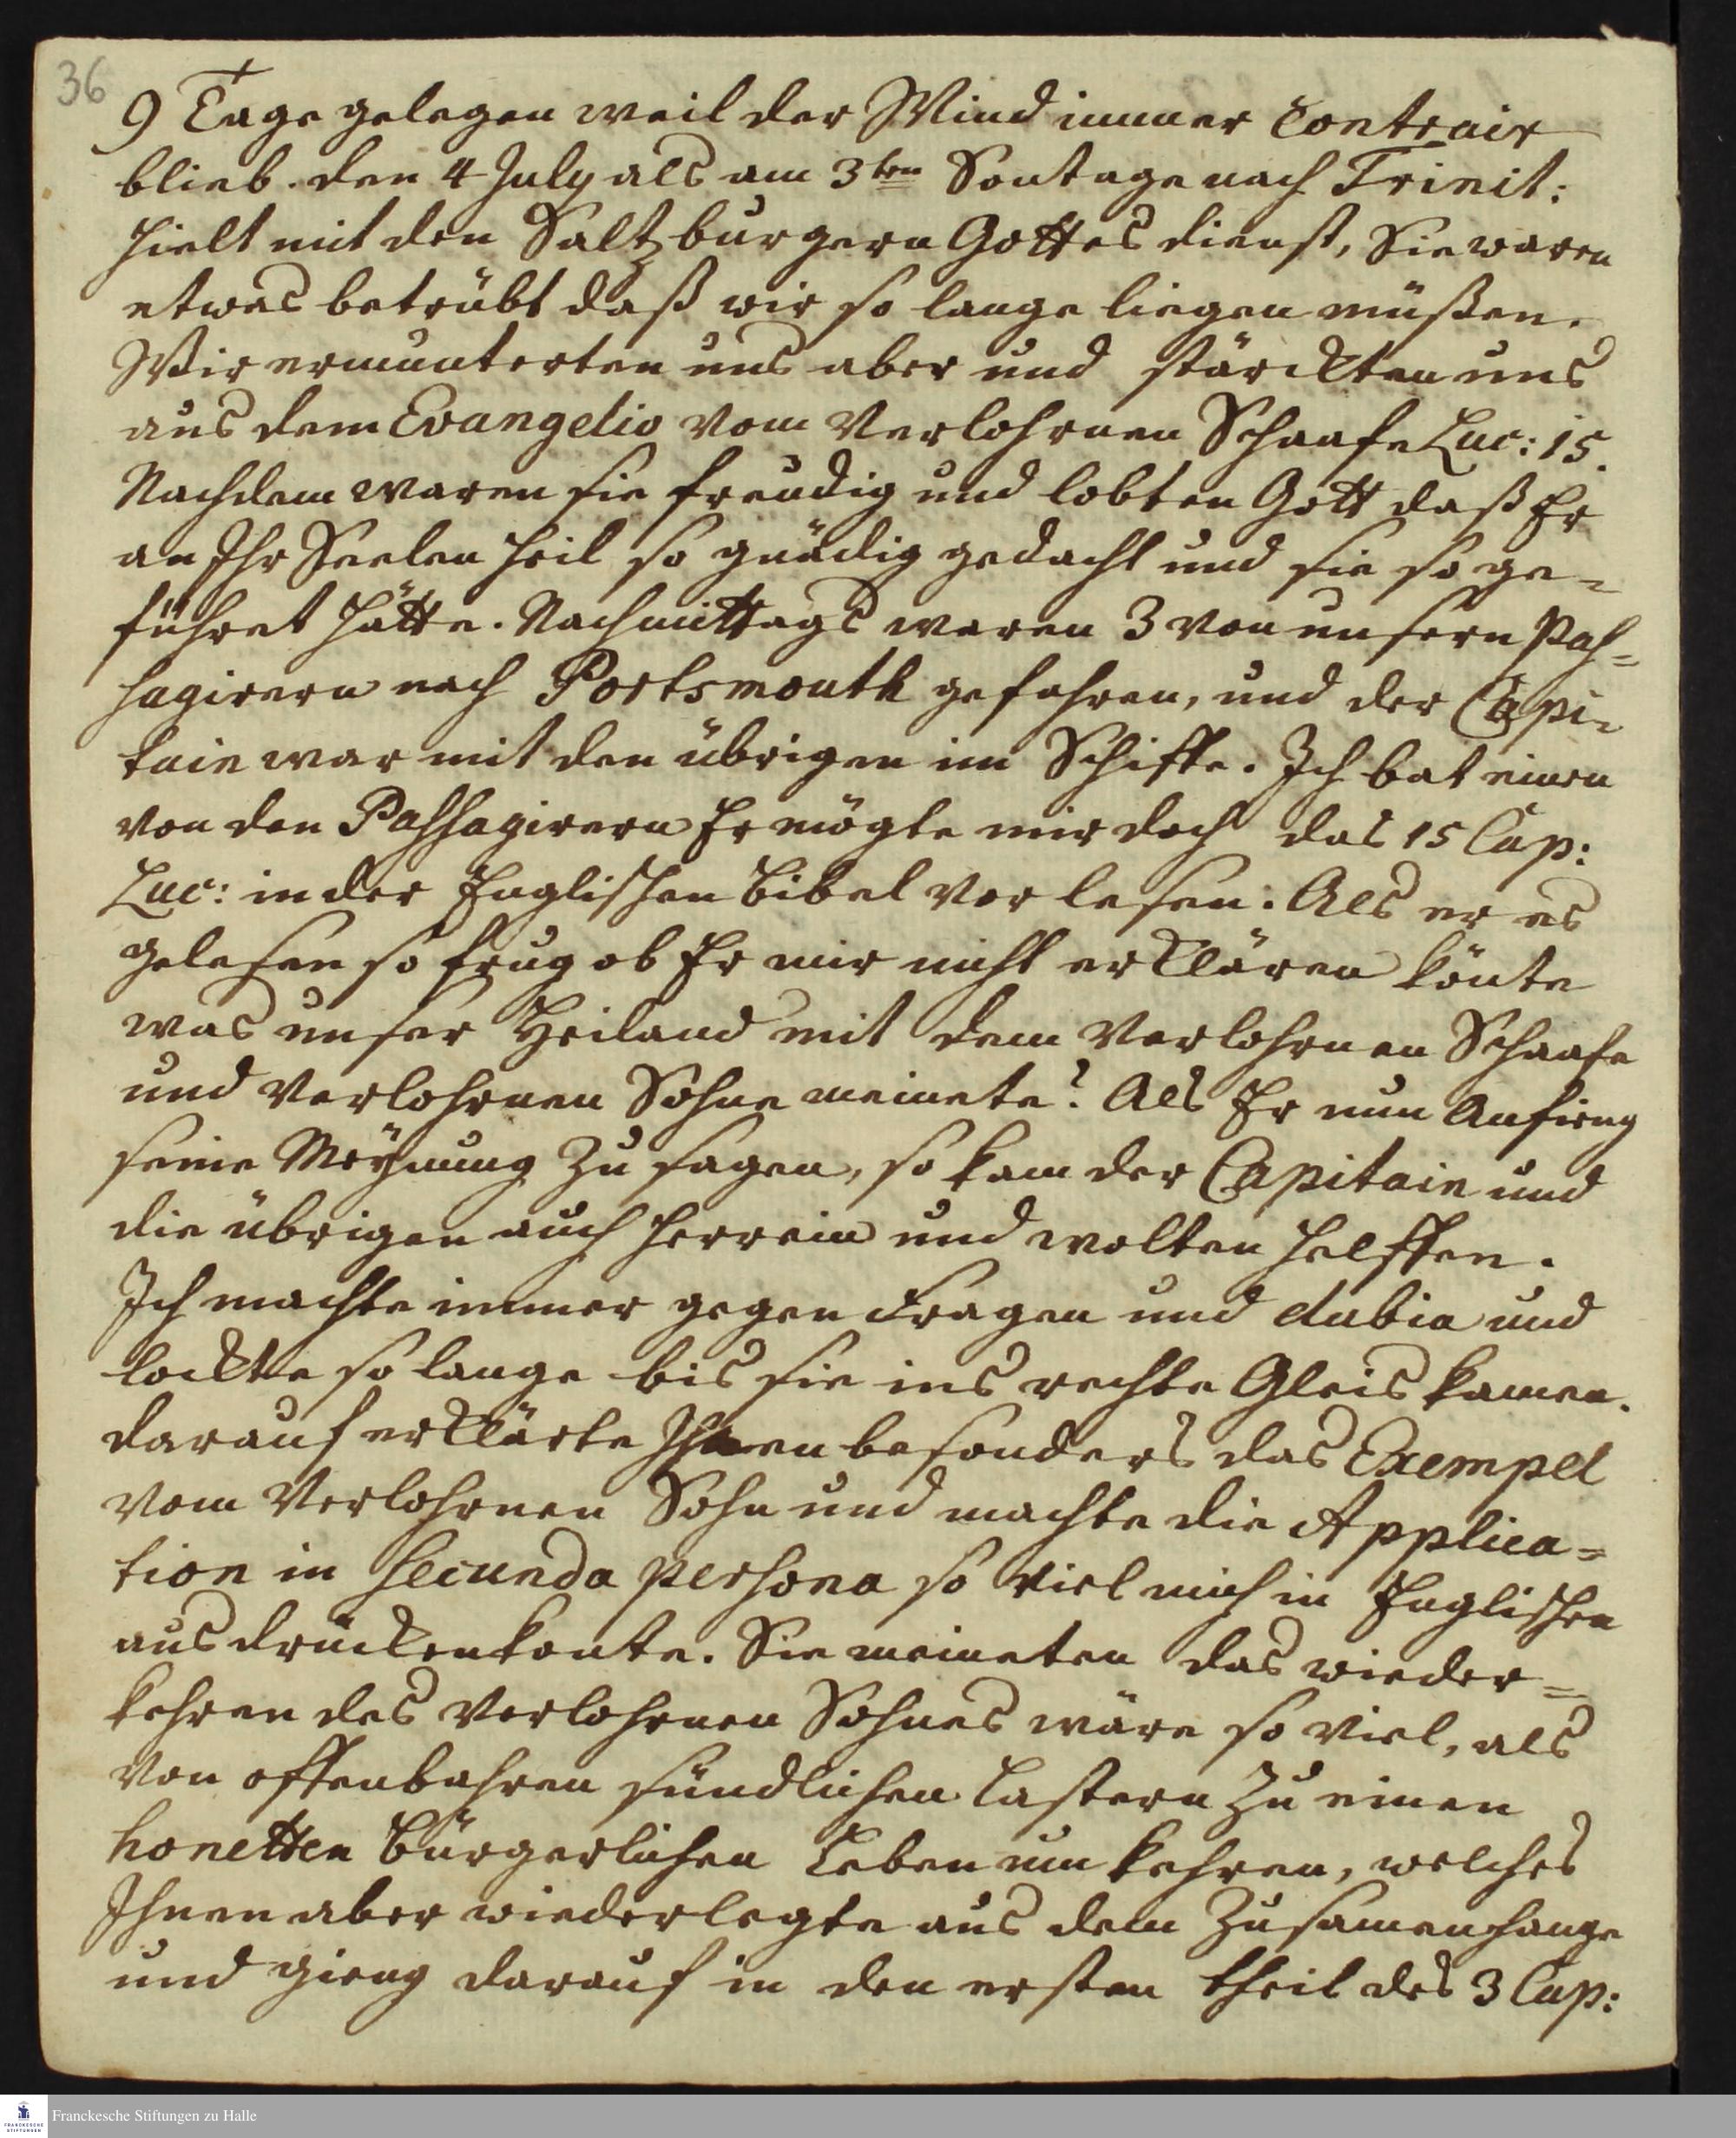 36
9 Tage gelegen weil der Wind immer Contrair
blieb. den 4 July als am 3ten Sontage nach Trinit:
hielt mit den Saltzburgern Gottes dienst, Sie waren
etwas betrübt daß wir so lange liegen müßen.
Wir ermunterten uns aber und stärckten uns
aus dem Evangelio vom Verlohrnen Schaafe Luc: 15.
Nachdem waren sie freudig und lobten Gott daß Er
an Ihr Seelen Heil so gnädig gedacht und sie so ge=
führet hätte. Nachmittags waren 3 von unsern Pas=
sagirern nach Portsmouth gefahren, und der Capi=
tain war mit den übrigen im Schiffe. Ich bat einen
von den Passagirern Er mögte mir doch das 15 Cap:
Luc: in der Englischen Bibel vor lesen. Als er es
gelesen so frug ob Er mir nicht erklären könte
was unser Heiland mit dem Verlohrnen Schaafe
und Verlohrnen Sohne meinete? Als Er nun Anfieng
seine Meÿnung zu sagen, so kam der Capitain und
die übrigen auch herrein und wolten helffen.
Ich machte immer gegen Fragen und dubia und
lockte so lange bis sie ins rechte Gleis kamen.
darauf erklärte Ihnen besonders das Exempel
vom Verlohrnen Sohn und machte die Applica=
tion in secunda persona so viel mich in Englischen
aus drücken konte. Sie meineten das wieder=
kehren des Verlohrnen Sohnes wäre so viel, als
von offenbahren sündlichen Lastern zu einen
honetten bürgerlichen Leben um kehren, welches
Ihnen aber wiederlegte aus dem Zusamenhange
und gieng darauf in den ersten theil des 3 Cap:
Franckesche Stiftungen zu Halle